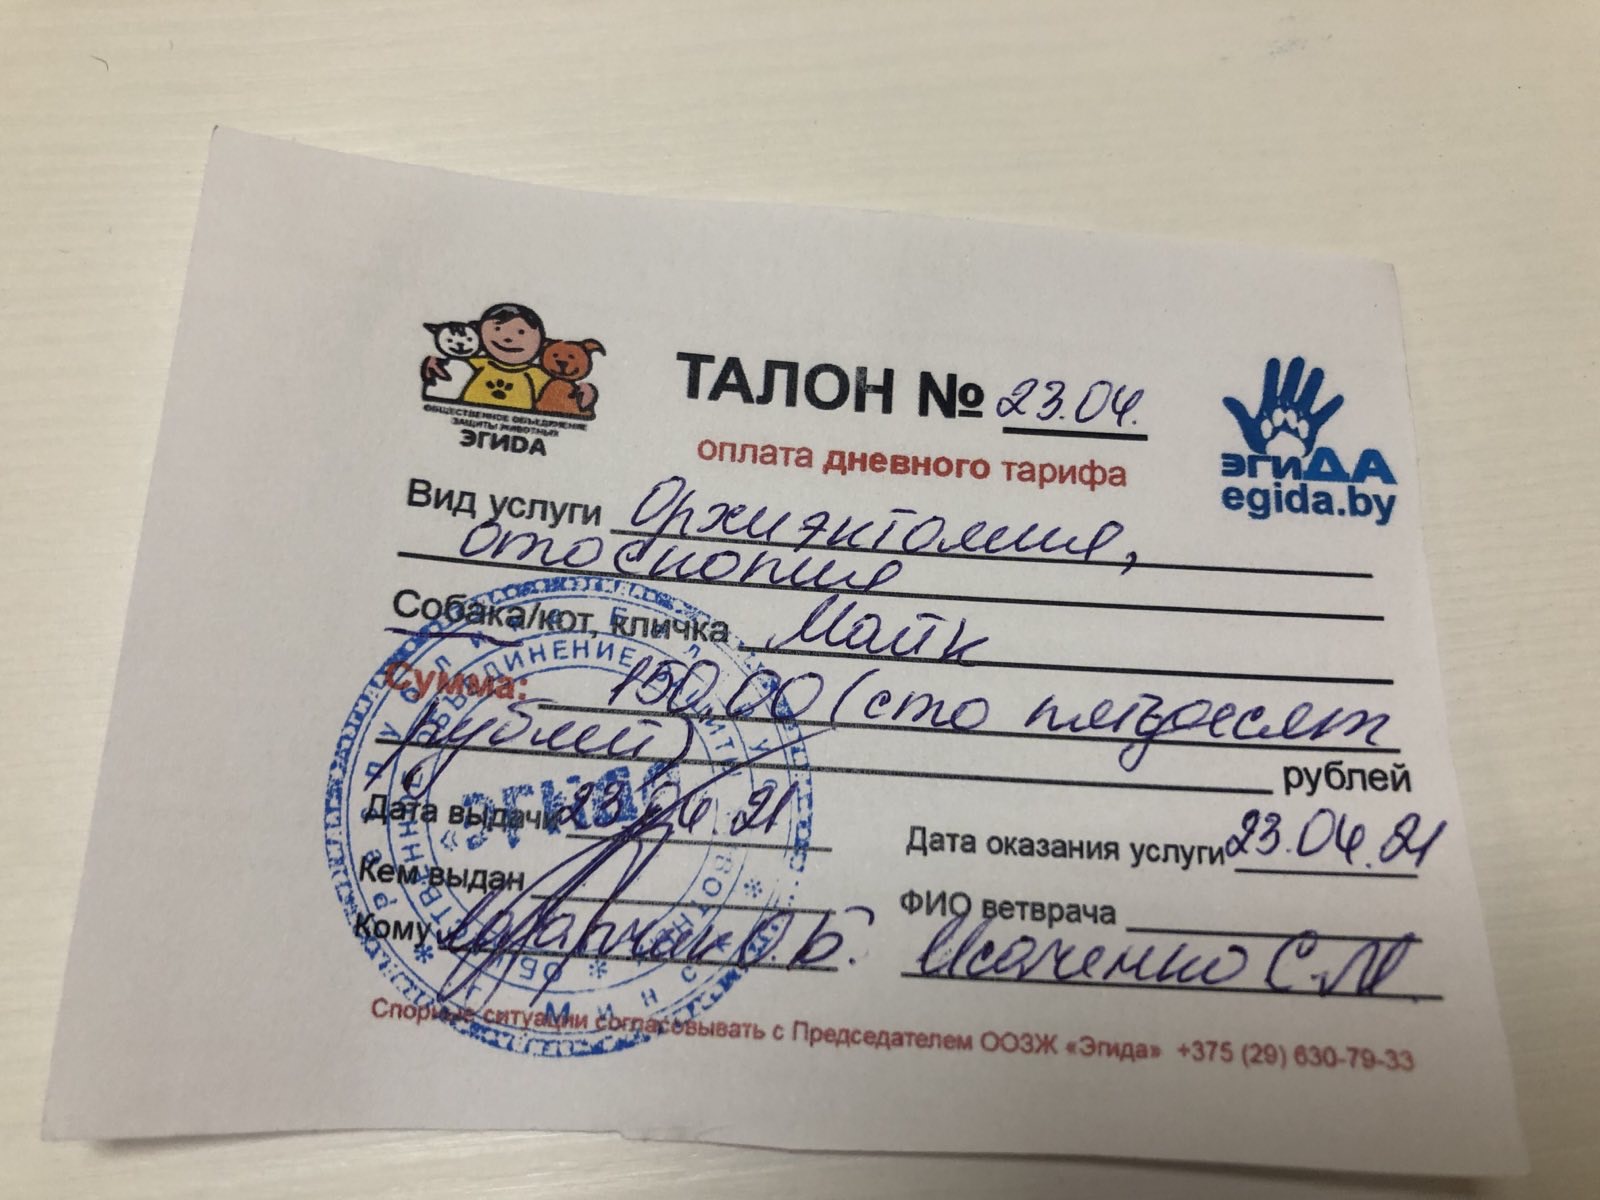 ОБЩЕСТВЕННОЕ ОБЪЕДИНЕНИЕ
ЗАЩИТЫ ЖИВОТНЫХ
ЭГИDА
ТАЛОН № 23.04.
оплата дневного тарифа
эгиДА
egida.by
Вид услуги Орхиэктомия,
отоскопия
Собака/кот, кличка Майк
Сумма: 150,00 (сто пятьдесят
рублей) рублей
Дата выдачи 23.04.21
Дата оказания услуги 23.04.21
Кем выдан
ФИО ветврача
Кому О.В.
Исаченко С.М.
Спорные ситуации согласовывать с Председателем ООЗЖ «Эгида» +375 (29) 630-79-33